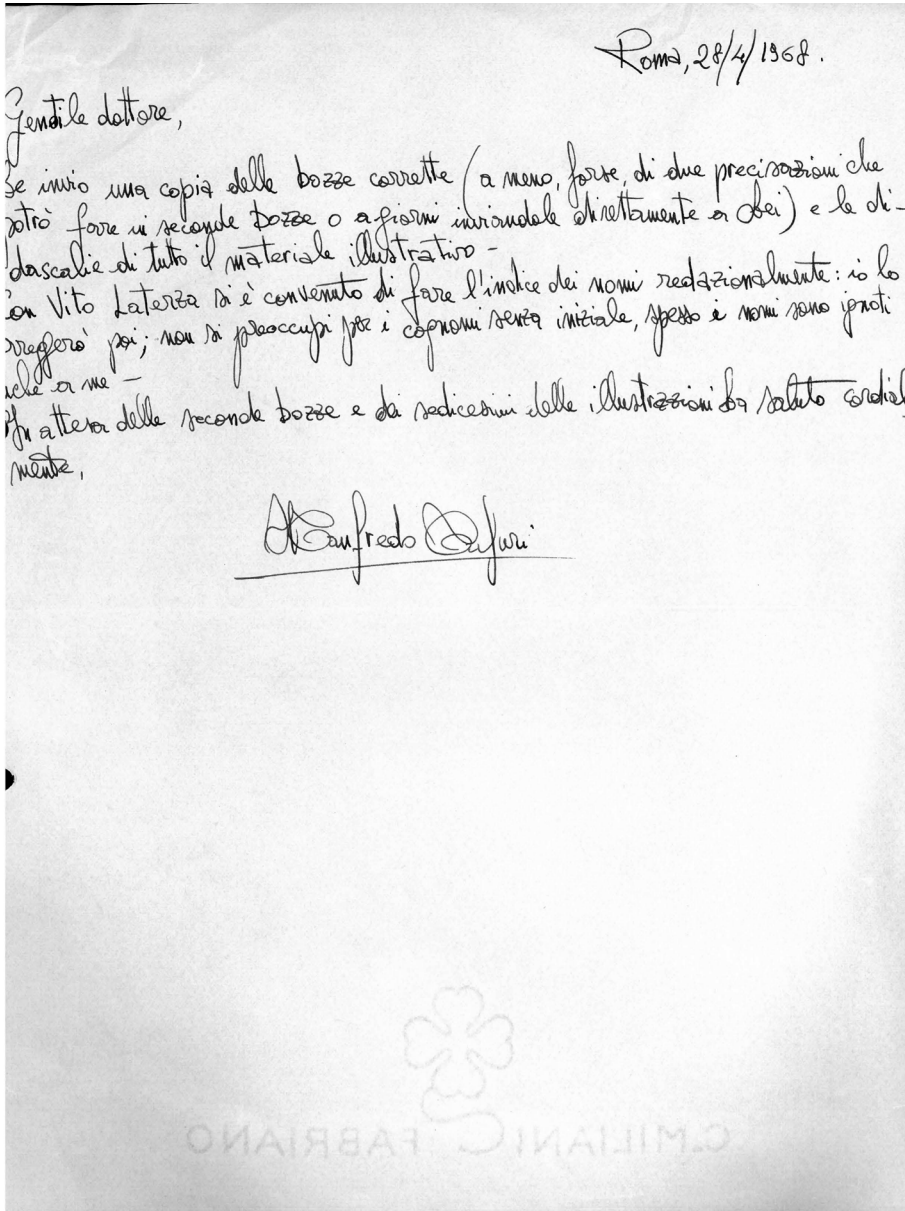 Roma, 28/4/1968.
Gentile dottore,
Le invio una copia delle bozze corrette (a meno, forse, di due precisazioni che
potrò fare in seconde bozze o a giorni inviandole direttamente a Obei) e le di-
dascalie di tutto il materiale illustrativo -
Con Vito Laterza si è convenuto di fare l'indice dei nomi redazionalmente: io lo
correggerò poi; non si preoccupi per i cognomi senza iniziale, spesso i nomi sono ignoti
anche a me -
In attesa delle seconde bozze e dei sedicesimi delle illustrazioni La saluto cordial
mente,
Manfredo Tafuri
C.MILIANI FABRIANO